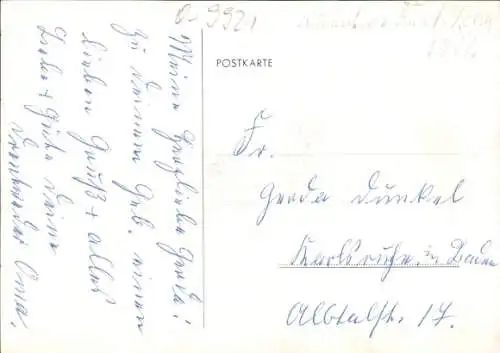 0-9921
POSTKARTE
Meine herzliebe Gerda!
zu Deinem Geb. einen
lieben Gruß + alles
Liebe + Gute Deine
Oma.
Fr.
Gerda Dunkel
Karlsruhe in Baden
Albtalstr. 17.